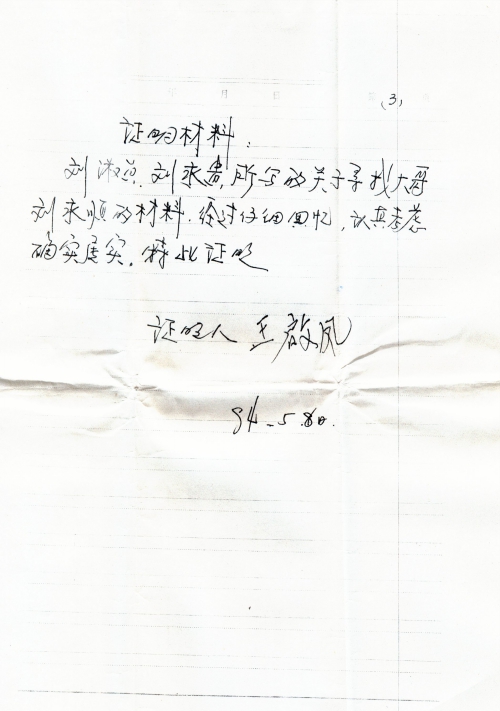 年 月 日
(3)
证明材料：
刘淑兰、刘来贵,所写的关于寻找大哥
刘来顺的材料.经过仔细回忆,认真考虑
确实属实。特此证明
证明人 王启凤
94.5.8日.